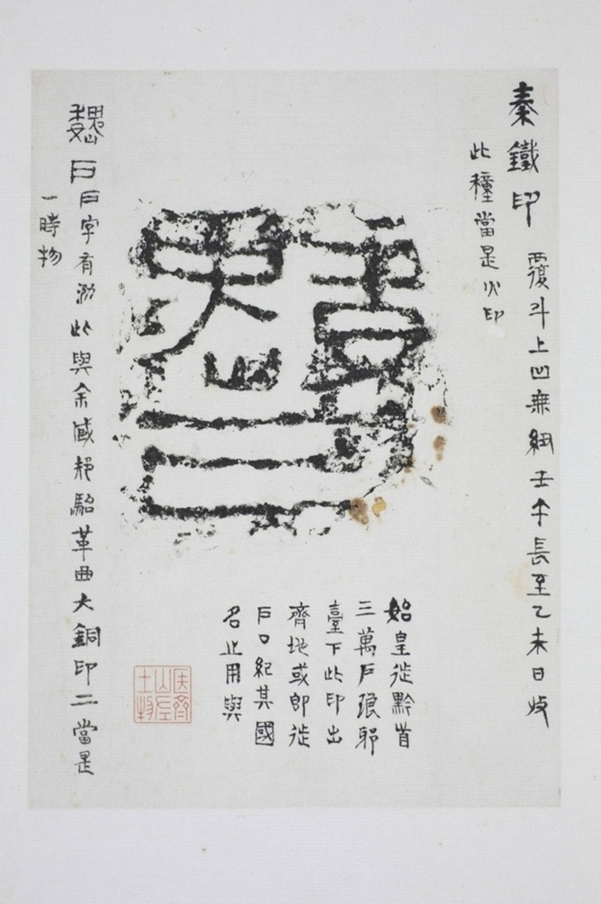 秦鐵印 覆斗上凹無紐壬午長至乙未日攷
此種當是火印
始皇徙黔首
三萬戶琅邪
臺下此印出
齊地或即徙
戶口紀其國
名之用與
魏戶戶字有泐此與余藏革曲大銅印二當是
一時物